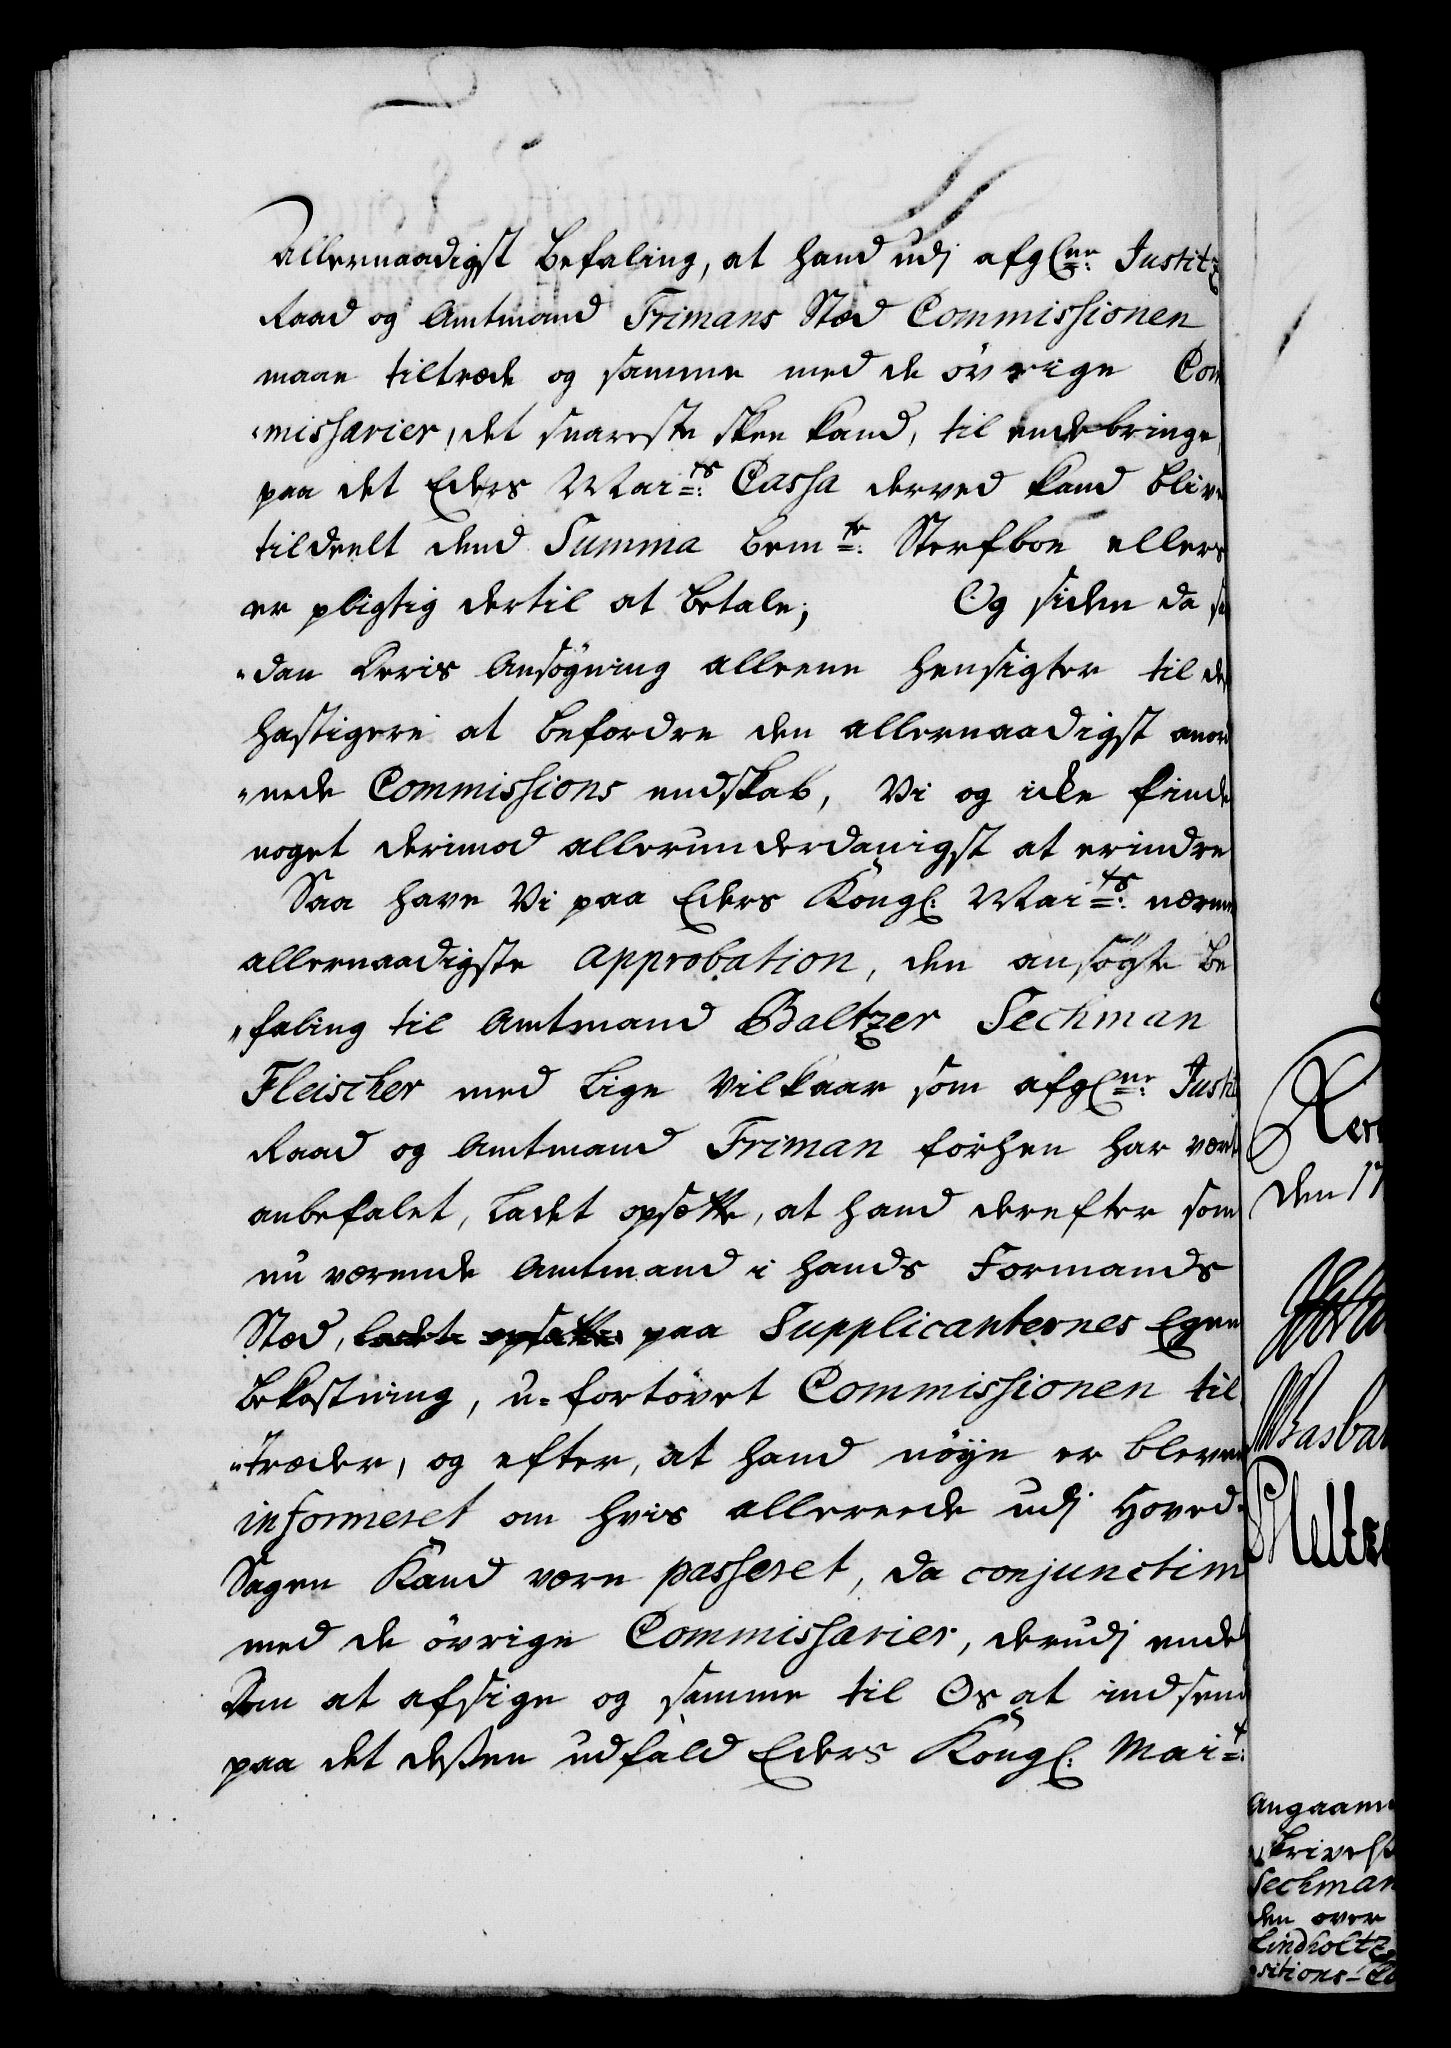 Allernaadigst befaling, at hand udj afgl:ne Justitz
Raad og Amtmand Frimans Stæd Commissionen
maae tiltræde og samme med de övrige Com
missarier, det snareste skee kand, til ende bringe,
paa det Eders Mai:ts Cassa derved kand blive
tildeelt dend Summa bem:te Sterfboe ellers
er pligtig dertil at betale; Og siden da
"dan Ansögning alleene hensigter til
hastigere at befordre den allernaadigst anord
"nede Commissions endskab, Vi og icke finde
noget derimod allerunderdanigst at erindre
Saa have Vi paa Eders Kongl: Mai:ts nærmere
allernaadigste approbation, den ansögte be
"faling til Amtmand Baltzer Sechman
Fleischer med Lige Vilkaar som afgl:ne Justitz
Raad og Amtmand Friman forhen har været
anbefalet, Ladet opsætte, at hand derefter som
nu værende Amtmand i hands Formands
Stæd, ladet opsætte paa Supplicanternes Egen
bekostning, u-fortövet Commissionen til
"træder, og efter, at hand nöye er bleven
informeret om hvis allereede udj Hoved-
Sagen Kand være passeret, da conjunctim
med de övrige Commissarier, derudj endel
Dom at afsige og samme til Os at indsende
paa det dessen udfald Eders Kongl: Mai:t
Rent
den 17
Angaaen
skrivelse
Sechman
den over
Lindholtz
sitions-Co